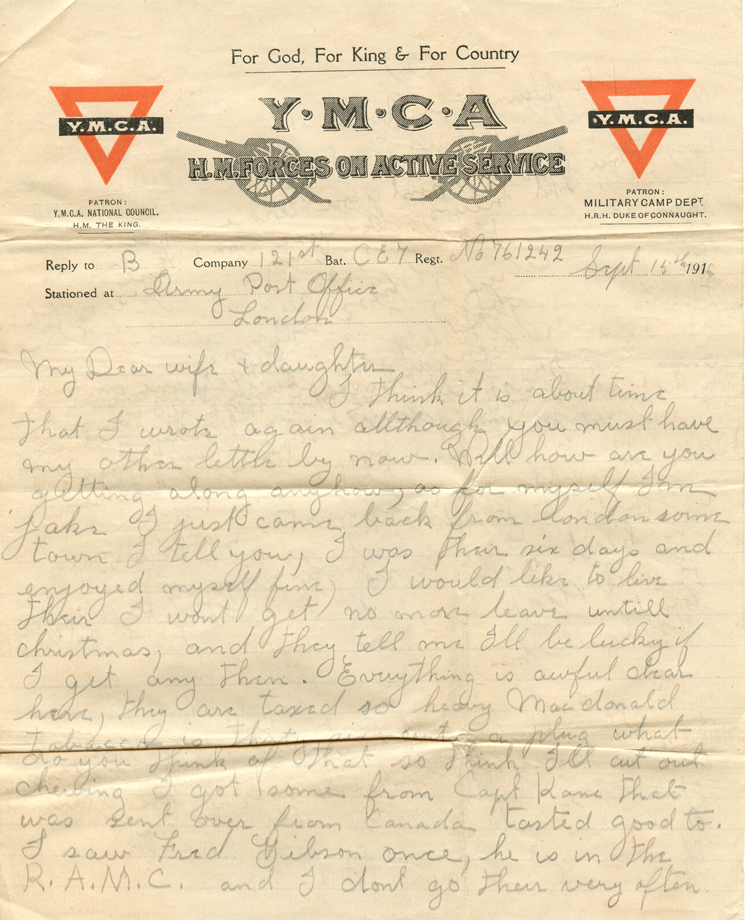 For God, For King & For Country
Y·M·C·A
H.M. FORCES ON ACTIVE SERVICE
Y.M.C.A.
PATRON:
Y.M.C.A. NATIONAL COUNCIL.
H.M. THE KING.
Y.M.C.A.
PATRON:
MILITARY CAMP DEPT.
H.R.H. DUKE OF CONNAUGHT.
Reply to B Company 121st Bat. C E F Regt. No 761242 Sept 15th 191
Stationed at Army Post Office
London
My Dear wife & daughter
I think it is about time
that I wrote again allthough you must have
my other letter by now. Well how are you
getting along anyhow, as for myself I'm
jake I just came back from london some
town I tell you, I was their six days and
enjoyed myself fine, I would like to live
their I wont get no more leave untill
christmas, and they tell me I'll be lucky if
I get any then. Everything is awful dear
here, they are taxed so heavy Macdonald
tobacco is a plug what
do you think of that so think I'll cut out
chewing I got some from Capt Kane that
was sent over from Canada tasted good to.
I saw Fred Gibson once, he is in the
R.A.M.C. and I dont go their very often.